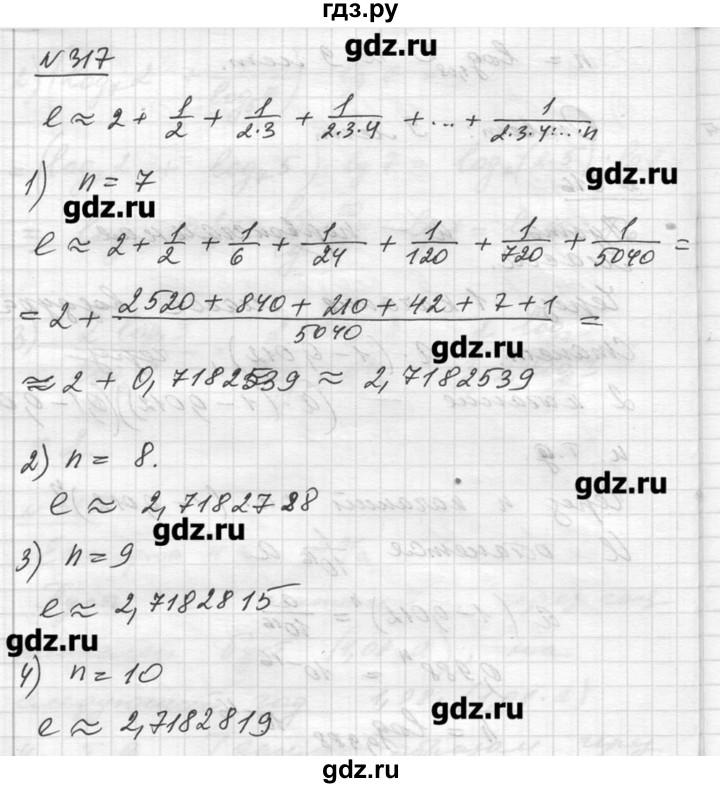 гдз.ру
gdz.ru
N 317
e ≈ 2 + 1/2 + 1/(2·3) + 1/(2·3·4) + ... + 1/(2·3·4·...·n)
gdz.ru
1) n = 7
gdz.ru
e ≈ 2 + 1/2 + 1/6 + 1/24 + 1/120 + 1/720 + 1/5040 =
= 2 + (2520 + 840 + 210 + 42 + 7 + 1)/5040 =
gdz.ru
≈ 2 + 0,7182539 ≈ 2,7182539
2) n = 8.
gdz.ru
e ≈ 2,7182788
gdz.ru
3) n = 9
e ≈ 2,7182815
gdz.ru
4) n = 10
gdz.ru
e ≈ 2,7182819
gdz.ru